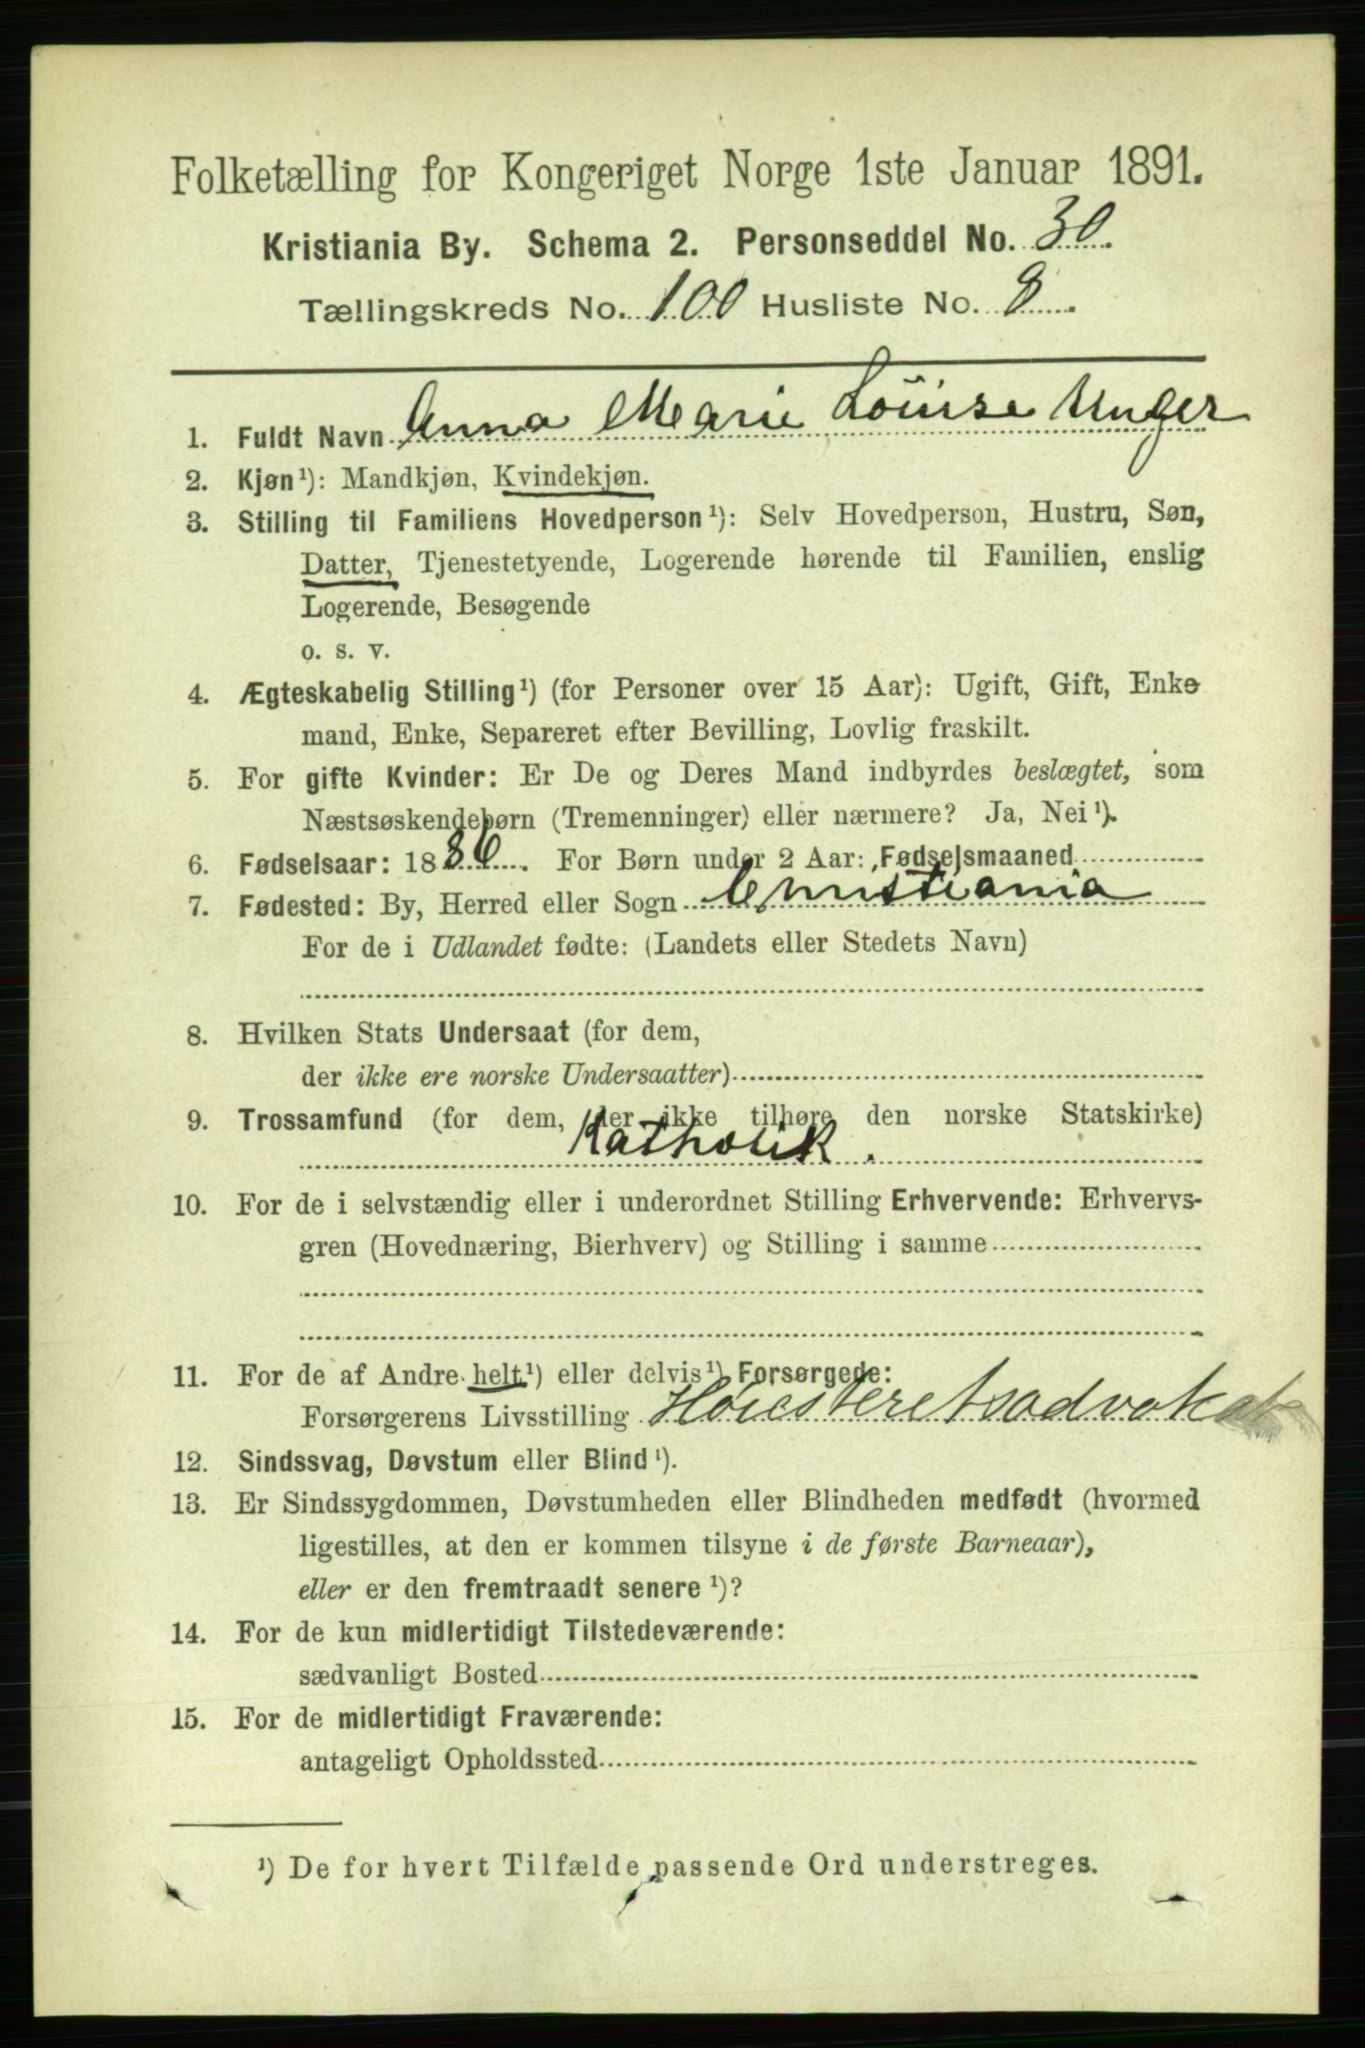 Folketælling for Kongeriget Norge 1ste Januar 1891.
Kristiania By. Schema 2. Personseddel No. 30.
Tællingskreds No. 100 Husliste No. 8.
1. Fuldt Navn Anna Marie Louise Unger
2. Kjøn¹): Mandkjøn, Kvindekjøn.
3. Stilling til Familiens Hovedperson¹): Selv Hovedperson, Hustru, Søn,
Datter, Tjenestetyende, Logerende hørende til Familien, enslig
Logerende, Besøgende
o. s. v.
4. Ægteskabelig Stilling¹) (for Personer over 15 Aar): Ugift, Gift, Enke
mand, Enke, Separeret efter Bevilling, Lovlig fraskilt.
5. For gifte Kvinder: Er De og Deres Mand indbyrdes beslægtet, som
Næstsøskendebørn (Tremenninger) eller nærmere? Ja, Nei¹).
6. Fødselsaar: 1886. For Børn under 2 Aar: Fødselsmaaned
7. Fødested: By, Herred eller Sogn Christiania
For de i Udlandet fødte: (Landets eller Stedets Navn)
8. Hvilken Stats Undersaat (for dem,
der ikke ere norske Undersaatter)
9. Trossamfund (for dem, der ikke tilhøre den norske Statskirke)
Katholik.
10. For de i selvstændig eller i underordnet Stilling Erhvervende: Erhvervs-
gren (Hovednæring, Bierhverv) og Stilling i samme
11. For de af Andre helt¹) eller delvis¹) Forsørgede:
Forsørgerens Livsstilling Høiesteretsadvokat
12. Sindssvag, Døvstum eller Blind¹).
13. Er Sindssygdommen, Døvstumheden eller Blindheden medfødt (hvormed
ligestilles, at den er kommen tilsyne i de første Barneaar),
eller er den fremtraadt senere¹)?
14. For de kun midlertidigt Tilstedeværende:
sædvanligt Bosted
15. For de midlertidigt Fraværende:
antageligt Opholdssted
¹) De for hvert Tilfælde passende Ord understreges.